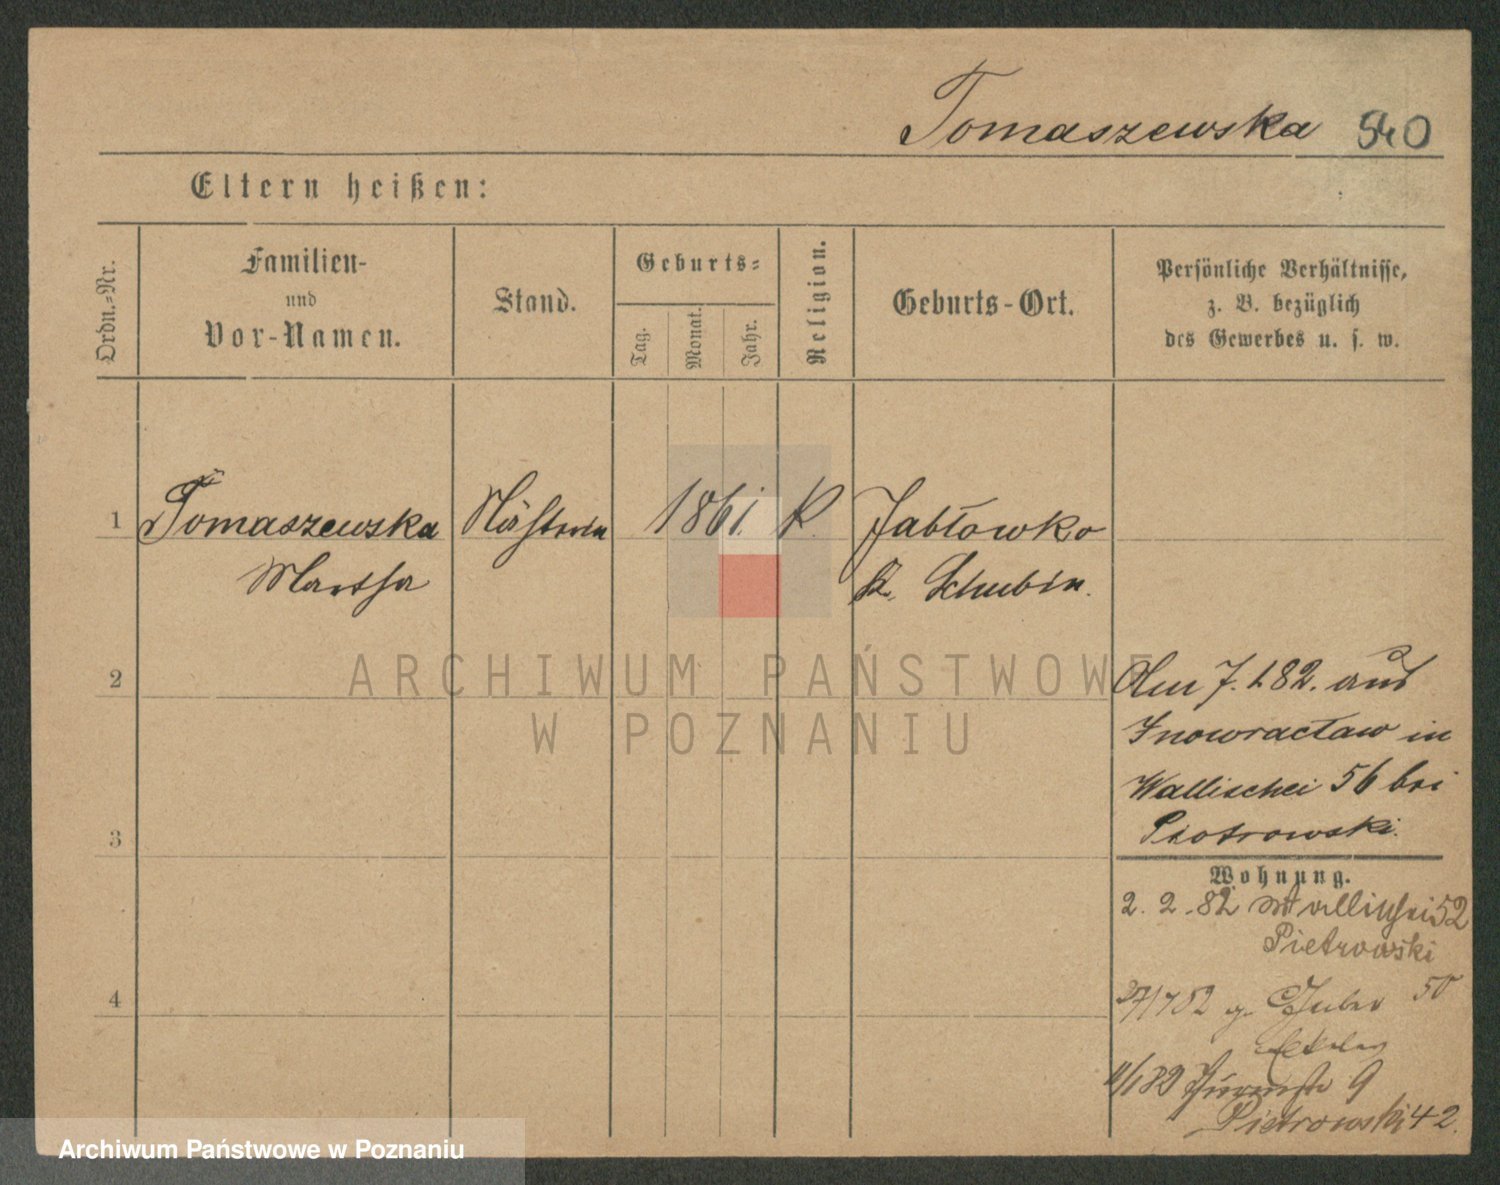 Tomaszewska 540
Eltern heißen:
Ordn.-Nr.
Familien-
und
Vor-Namen.
Stand.
Geburts-
Tag.
Monat.
Jahr.
Religion.
Geburts-Ort.
Persönliche Verhältnisse,
z. B. bezüglich
des Gewerbes u. s. w.
1 Tomaszewska Näherin 1861. K. Jabłowko
Martha K. Schubin.
2
Am 7. 1. 82. aus
Inowracław in
Wallischei 56 bei
Piotrowski.
3
Wohnung.
2. 2. 82 Wallischei 52
Pietrowski
4
50
9
Pietrowski 42.
ARCHIWUM PAŃSTWOWE
W POZNANIU
Archiwum Państwowe w Poznaniu